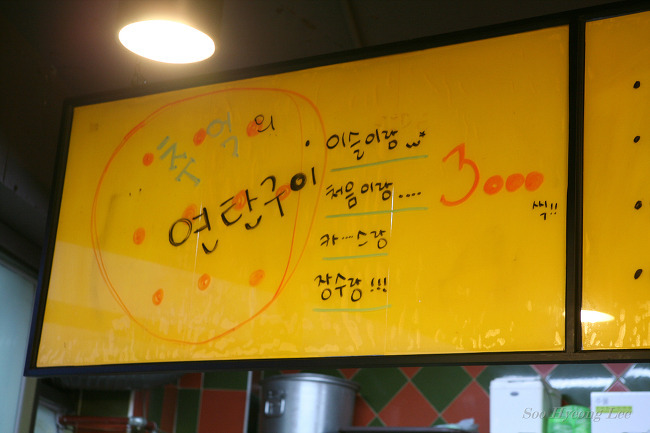 추억의
연탄구이
이슬이랑
처음이랑....
카....스랑
장수랑!!!
3000
씩!!
Soo Hyeong Lee